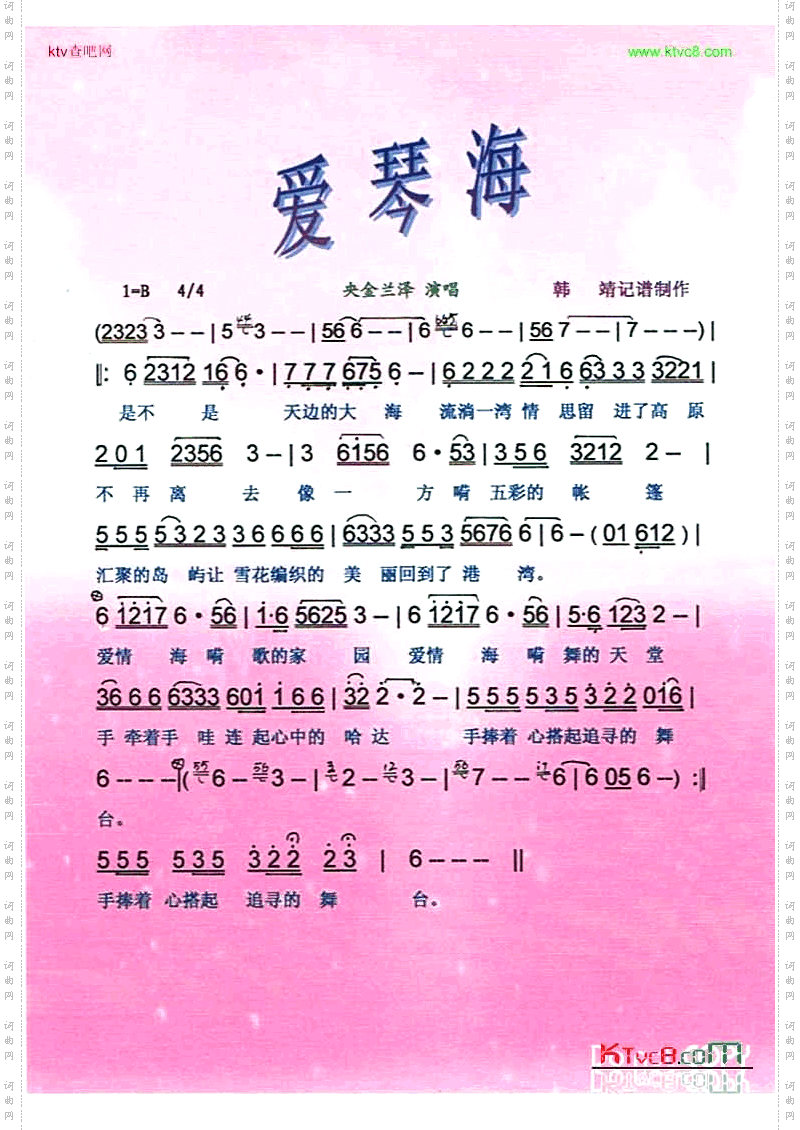 ktv查吧网 www.ktvc8.com
爱琴海
1=B 4/4 央金兰泽 演唱 韩 靖记谱制作
(2323 3 – – | 5 3 – – | 56 6 – – | 6 6 – – | 56 7 – – | 7 – – – ) |
‖: 6 2312 16 6 · | 7 7 7 675 6 – | 6 2 2 2 2 1 6 6 3 3 3 3221 |
是不 是 天边的大 海 流淌一湾 情 思留 进了高 原
2 0 1 2356 3 – | 3 6156 6 · 53 | 3 5 6 3212 2 – |
不 再 离 去 像 一 方 嗬 五彩的 帐 篷
5 5 5 5 3 2 3 3 6 6 6 6 | 6333 5 5 3 5676 6 | 6 – ( 01 612 ) |
汇聚的岛 屿让 雪花编织的 美 丽回到了 港 湾。
6 1217 6 · 56 | 1·6 5625 3 – | 6 1217 6 · 56 | 5·6 123 2 – |
爱情 海 嗬 歌的家 园 爱情 海 嗬 舞的 天 堂
36 6 6 6333 601 1 6 6 | 32 2 · 2 – | 5 5 5 5 3 5 3 2 2 016 |
手 牵着手 哇 连 起心中的 哈 达 手捧着 心搭起追寻的 舞
6 – – – | ( 6 – 3 – | 2 – 3 – | 7 – – 6 | 6 05 6 – ) :‖
台。
5 5 5 5 3 5 3 2 2 2 3 | 6 – – – ‖
手捧着 心搭起 追寻的 舞 台。
KTvc8.com